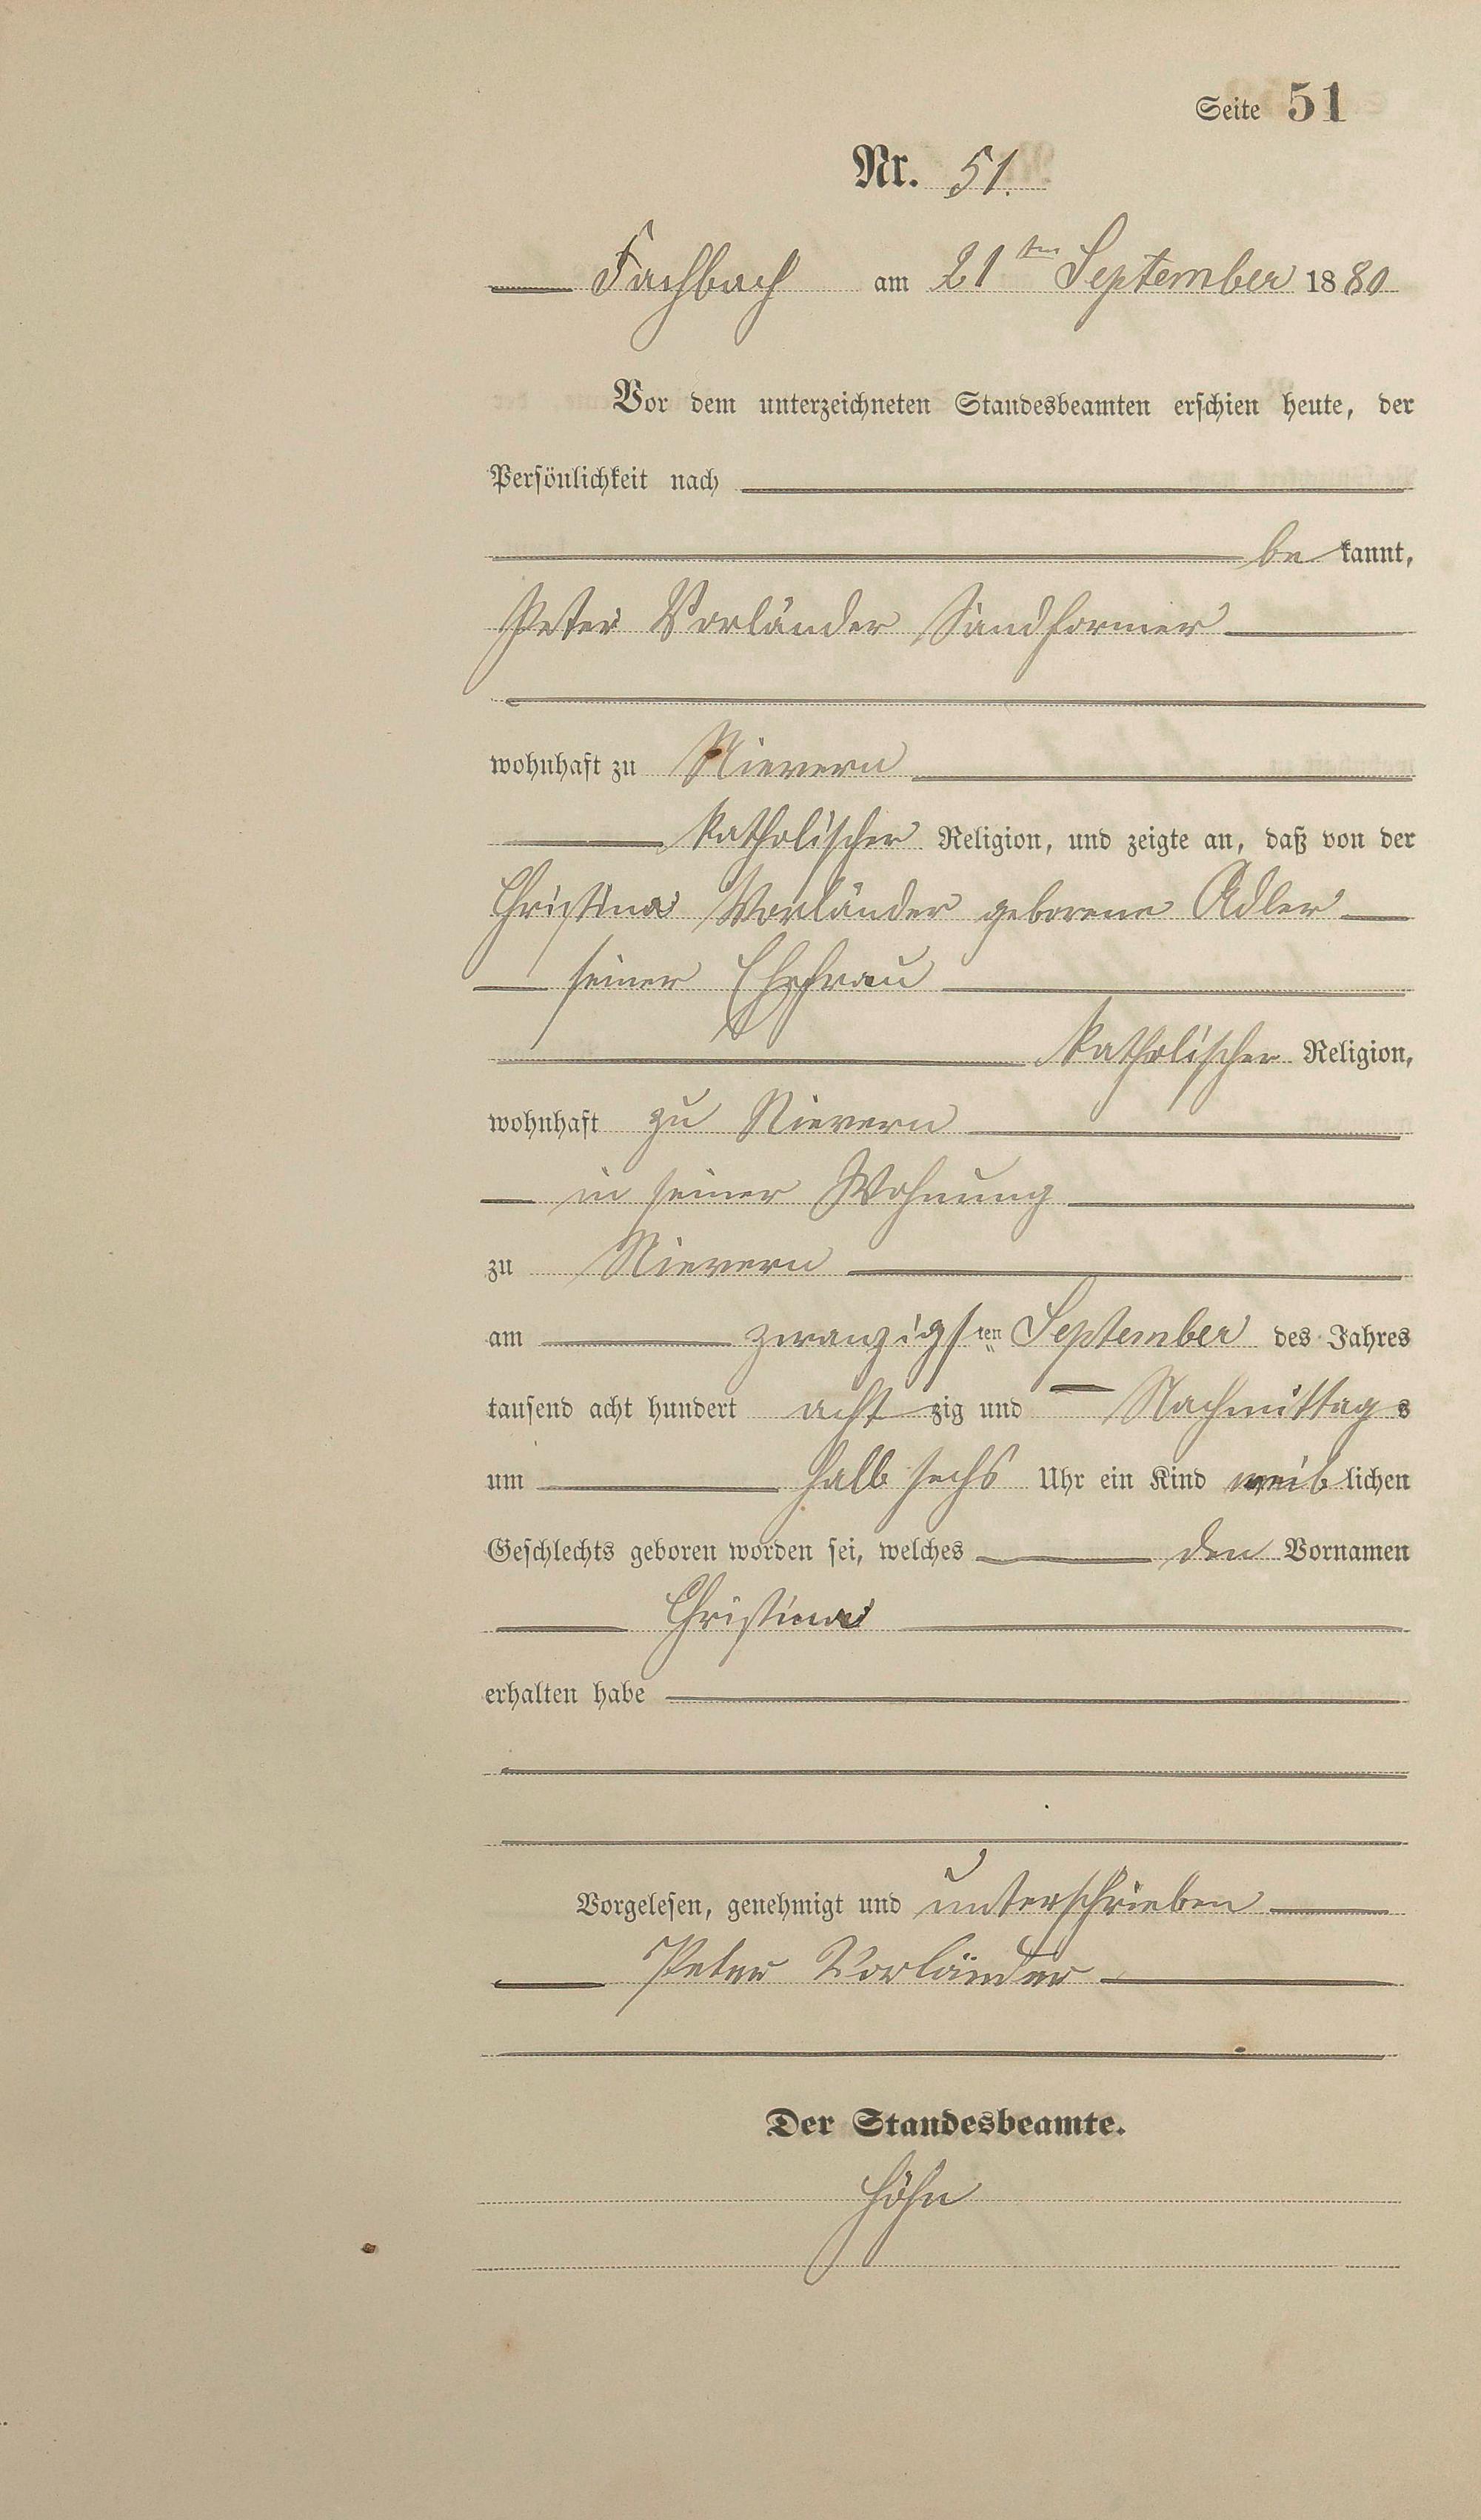 Seite 51
Nr. 51.
Fachbach am 21ten September 1880
Vor dem unterzeichneten Standesbeamten erschien heute, der
Persönlichkeit nach
bekannt,
Peter Vorländer Sandformer
wohnhaft zu Nievern
katholischer Religion, und zeigte an, daß von der
Christina Vorländer geborene Adler
seiner Ehefrau
katholischer Religion,
wohnhaft zu Nievern
in seiner Wohnung
zu Nievern
am zwanzigsten September des Jahres
tausend acht hundert achtzig und — Nachmittags
um halb sechs Uhr ein Kind weiblichen
Geschlechts geboren worden sei, welches den Vornamen
Christina
erhalten habe
Vorgelesen, genehmigt und unterschrieben
Peter Vorländer
Der Standesbeamte.
Höhn